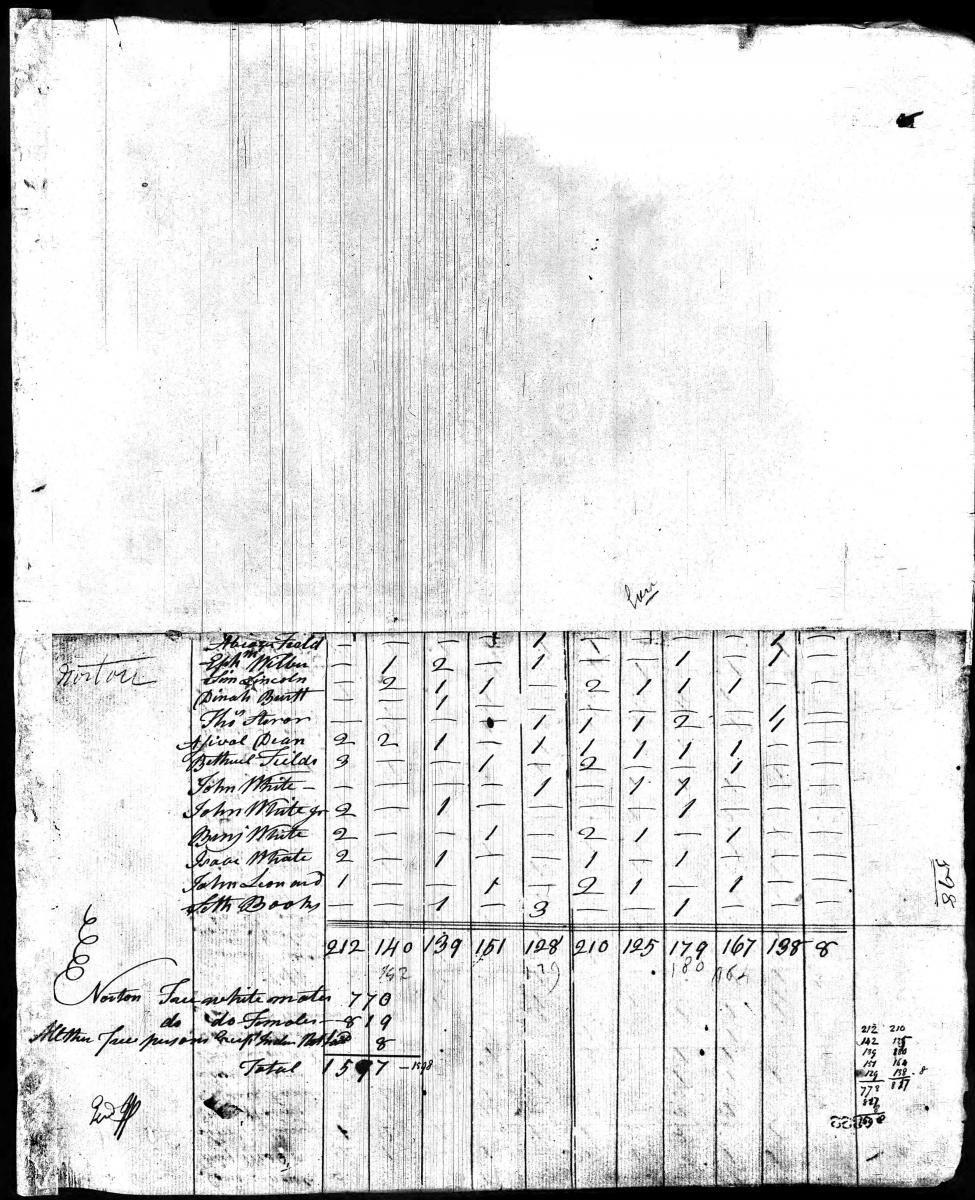 Norton
Field — — — — 1 1 — — 1 —
Ephm Wilbur — 1 2 — 1 — — 1 — 1 —
Sim Lincoln — 2 1 1 — 2 1 1 1 — —
Dinah Burtt — — 1 — — — — — — — —
Thos — — — — 1 1 1 2 — 1 —
Dean 2 2 1 — 1 1 1 1 1 — —
Bethuel Fields 3 — — 1 — 2 — — 1 — —
John White — — — — — 1 — 1 1 — — —
John White jr 2 — 1 — — — — 1 — — —
Benj White 2 — — 1 — 2 1 — 1 — —
Isaac White 2 — 1 — — 1 — 1 — — —
John Leonard 1 — — 1 — 2 1 — 1 — —
Seth Books — — 1 — 3 — — 1 — — —
212 140 139 151 128 210 125 179 167 138 8
142 129 180 164
Norton Free white males 770
do do Females — 819
All other free persons 8
Total 1597 — 1598
598
212 210
142 125
139 180
151 164
129 138 - 8
773 817